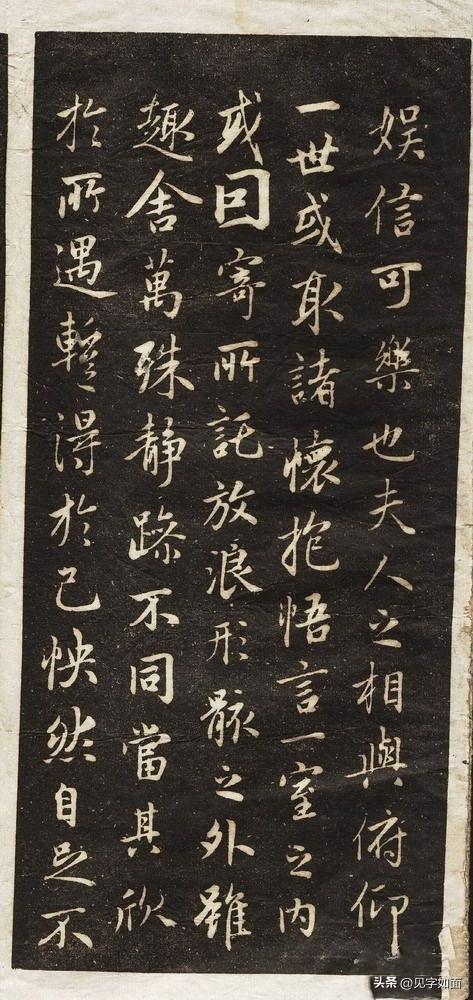 娱信可樂也夫人之相與俯仰
一世或取諸懷抱悟言一室之内
或因寄所託放浪形骸之外雖
趣舍萬殊静躁不同當其欣
於所遇暫得於己怏然自足不
头条 @见字如面